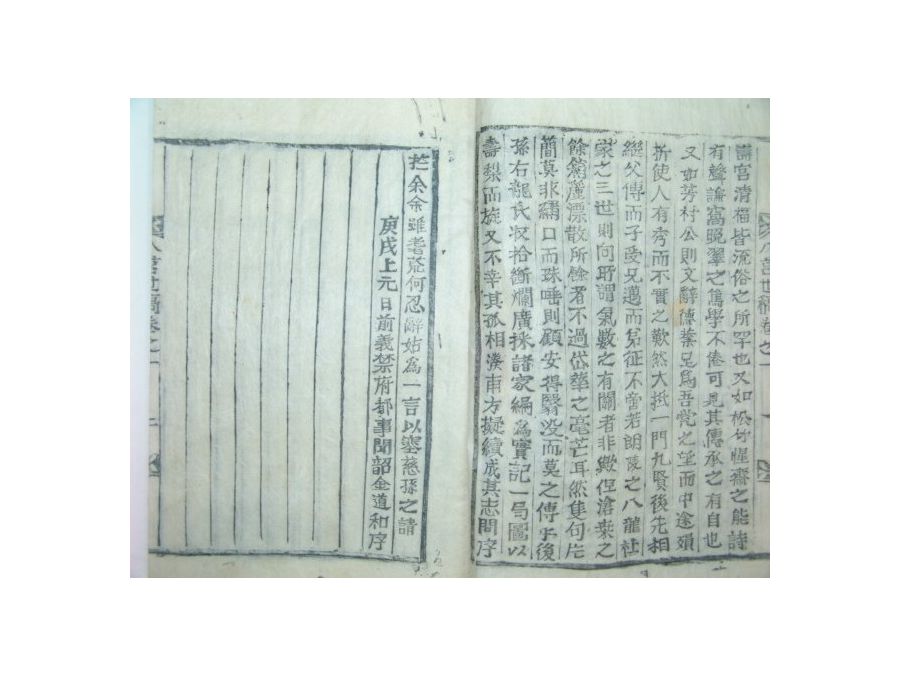 壽宮清福皆流俗之所罕也又如松竹惺齋之能詩
有聲論窩晩翠之篤學不倦可見其傳承之有自也
又如芳村公則文辭德業足爲吾党之望而中途
折使人有秀而不實之歎然大抵一門九賢後先相
継父傳而子受兄邁而弟征不啻若朗陵之八龍杜
家之三世則向所謂氣數之有關者非歟但滄桒之
餘箱簏漂散所餘者不過岱華之毫芒耳然隻句片
簡莫非繡口而珠唾則顧安得翳没而莫之傳乎後
孫右龍氏収拾斷爛廣採諸家編爲實記一局圖以
壽梨而旋又不幸其孤相瀁甫方擬續成其志問序
於余余雖耆荒何忍辭姑爲一言以塞慈孫之請
庚戌上元日前義禁府都事聞韶金道和序
八
世稿卷之一
世稿卷之一